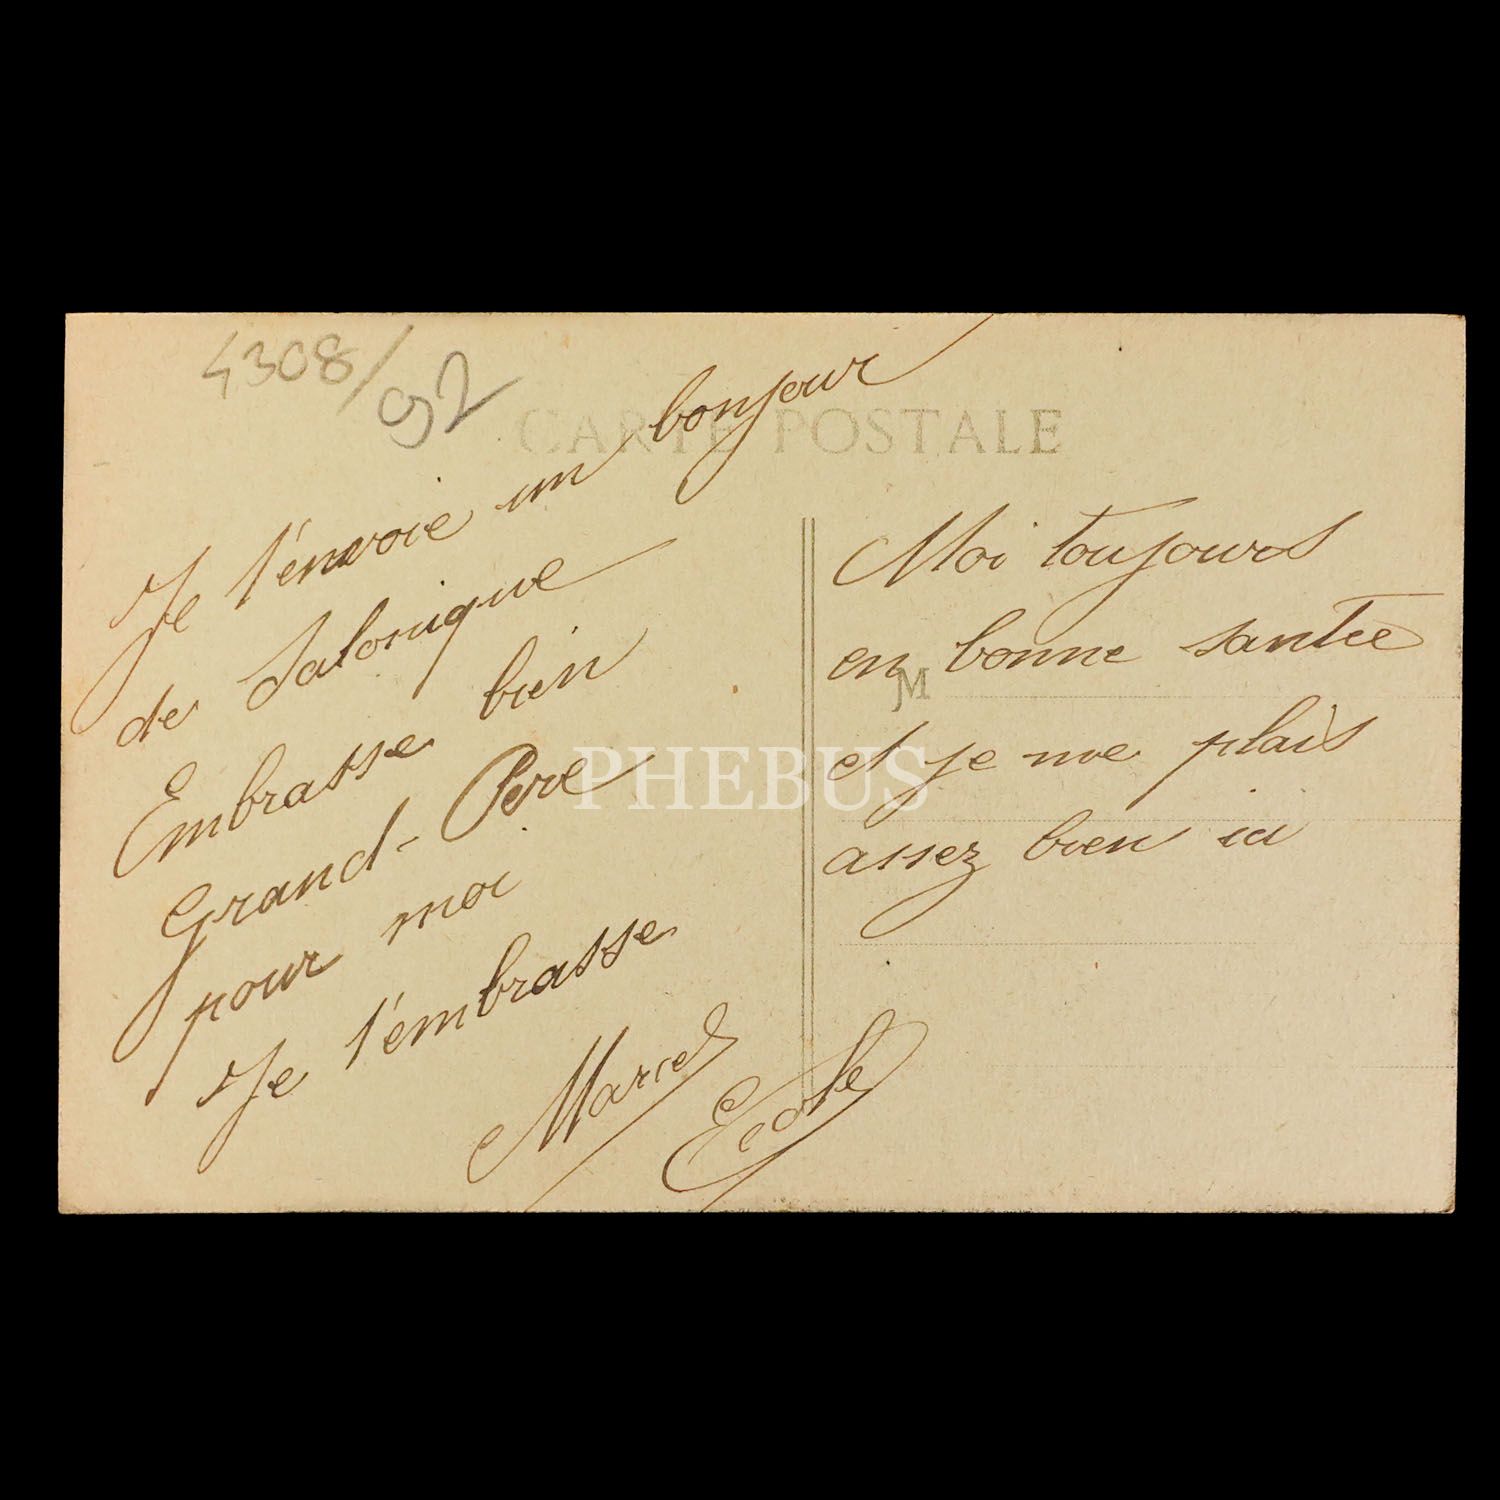 4308/92
CARTE POSTALE
Je t'envoie un bonjour
de Salonique
Embrasse bien
Grand-Père
pour moi
Je t'embrasse
Marcel
Moi toujours
en bonne santée
M
et je me plais
assez bien ici
PHEBUS